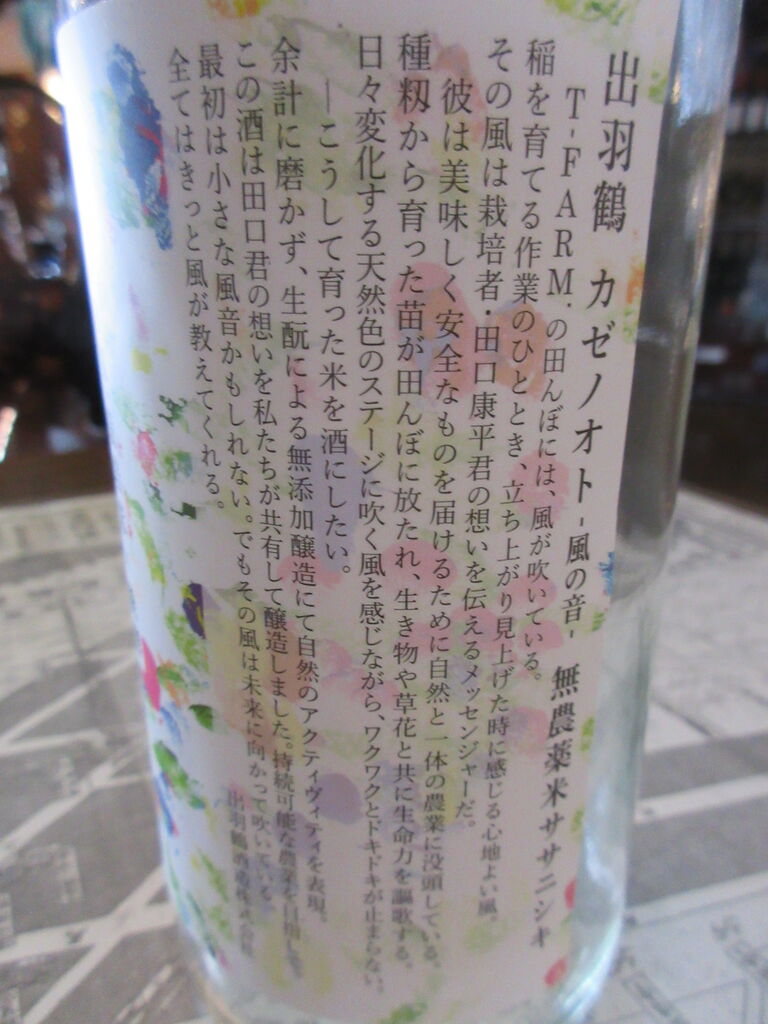 出羽鶴 カゼノオト-風の音- 無農薬米ササニシキ
T-FARM.の田んぼには、風が吹いている。
稲を育てる作業のひととき、立ち上がり見上げた時に感じる心地よい風。
その風は栽培者・田口康平君の想いを伝えるメッセンジャーだ。
彼は美味しく安全なものを届けるために自然と一体の農業に没頭している。
種籾から育った苗が田んぼに放たれ、生き物や草花と共に生命力を謳歌する。
日々変化する天然色のステージに吹く風を感じながら、ワクワクとドキドキが止まらない。
―こうして育った米を酒にしたい。
余計に磨かず、生酛による無添加醸造にて自然のアクティヴィティを表現。
この酒は田口君の想いを私たちが共有して醸造しました。持続可能な農業を目指して
最初は小さな風音かもしれない。でもその風は未来に向かって吹いている
全てはきっと風が教えてくれる。
出羽鶴酒造株式会社